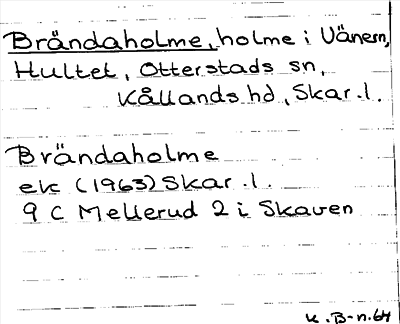 Brändaholme, holme i Vänern,
Hultet, Otterstads sn,
Kållands hd, Skar.l.
Brändaholme
ek (1963) Skar.l.
9 C Mellerud 2 i Skaven
K.B-n.64